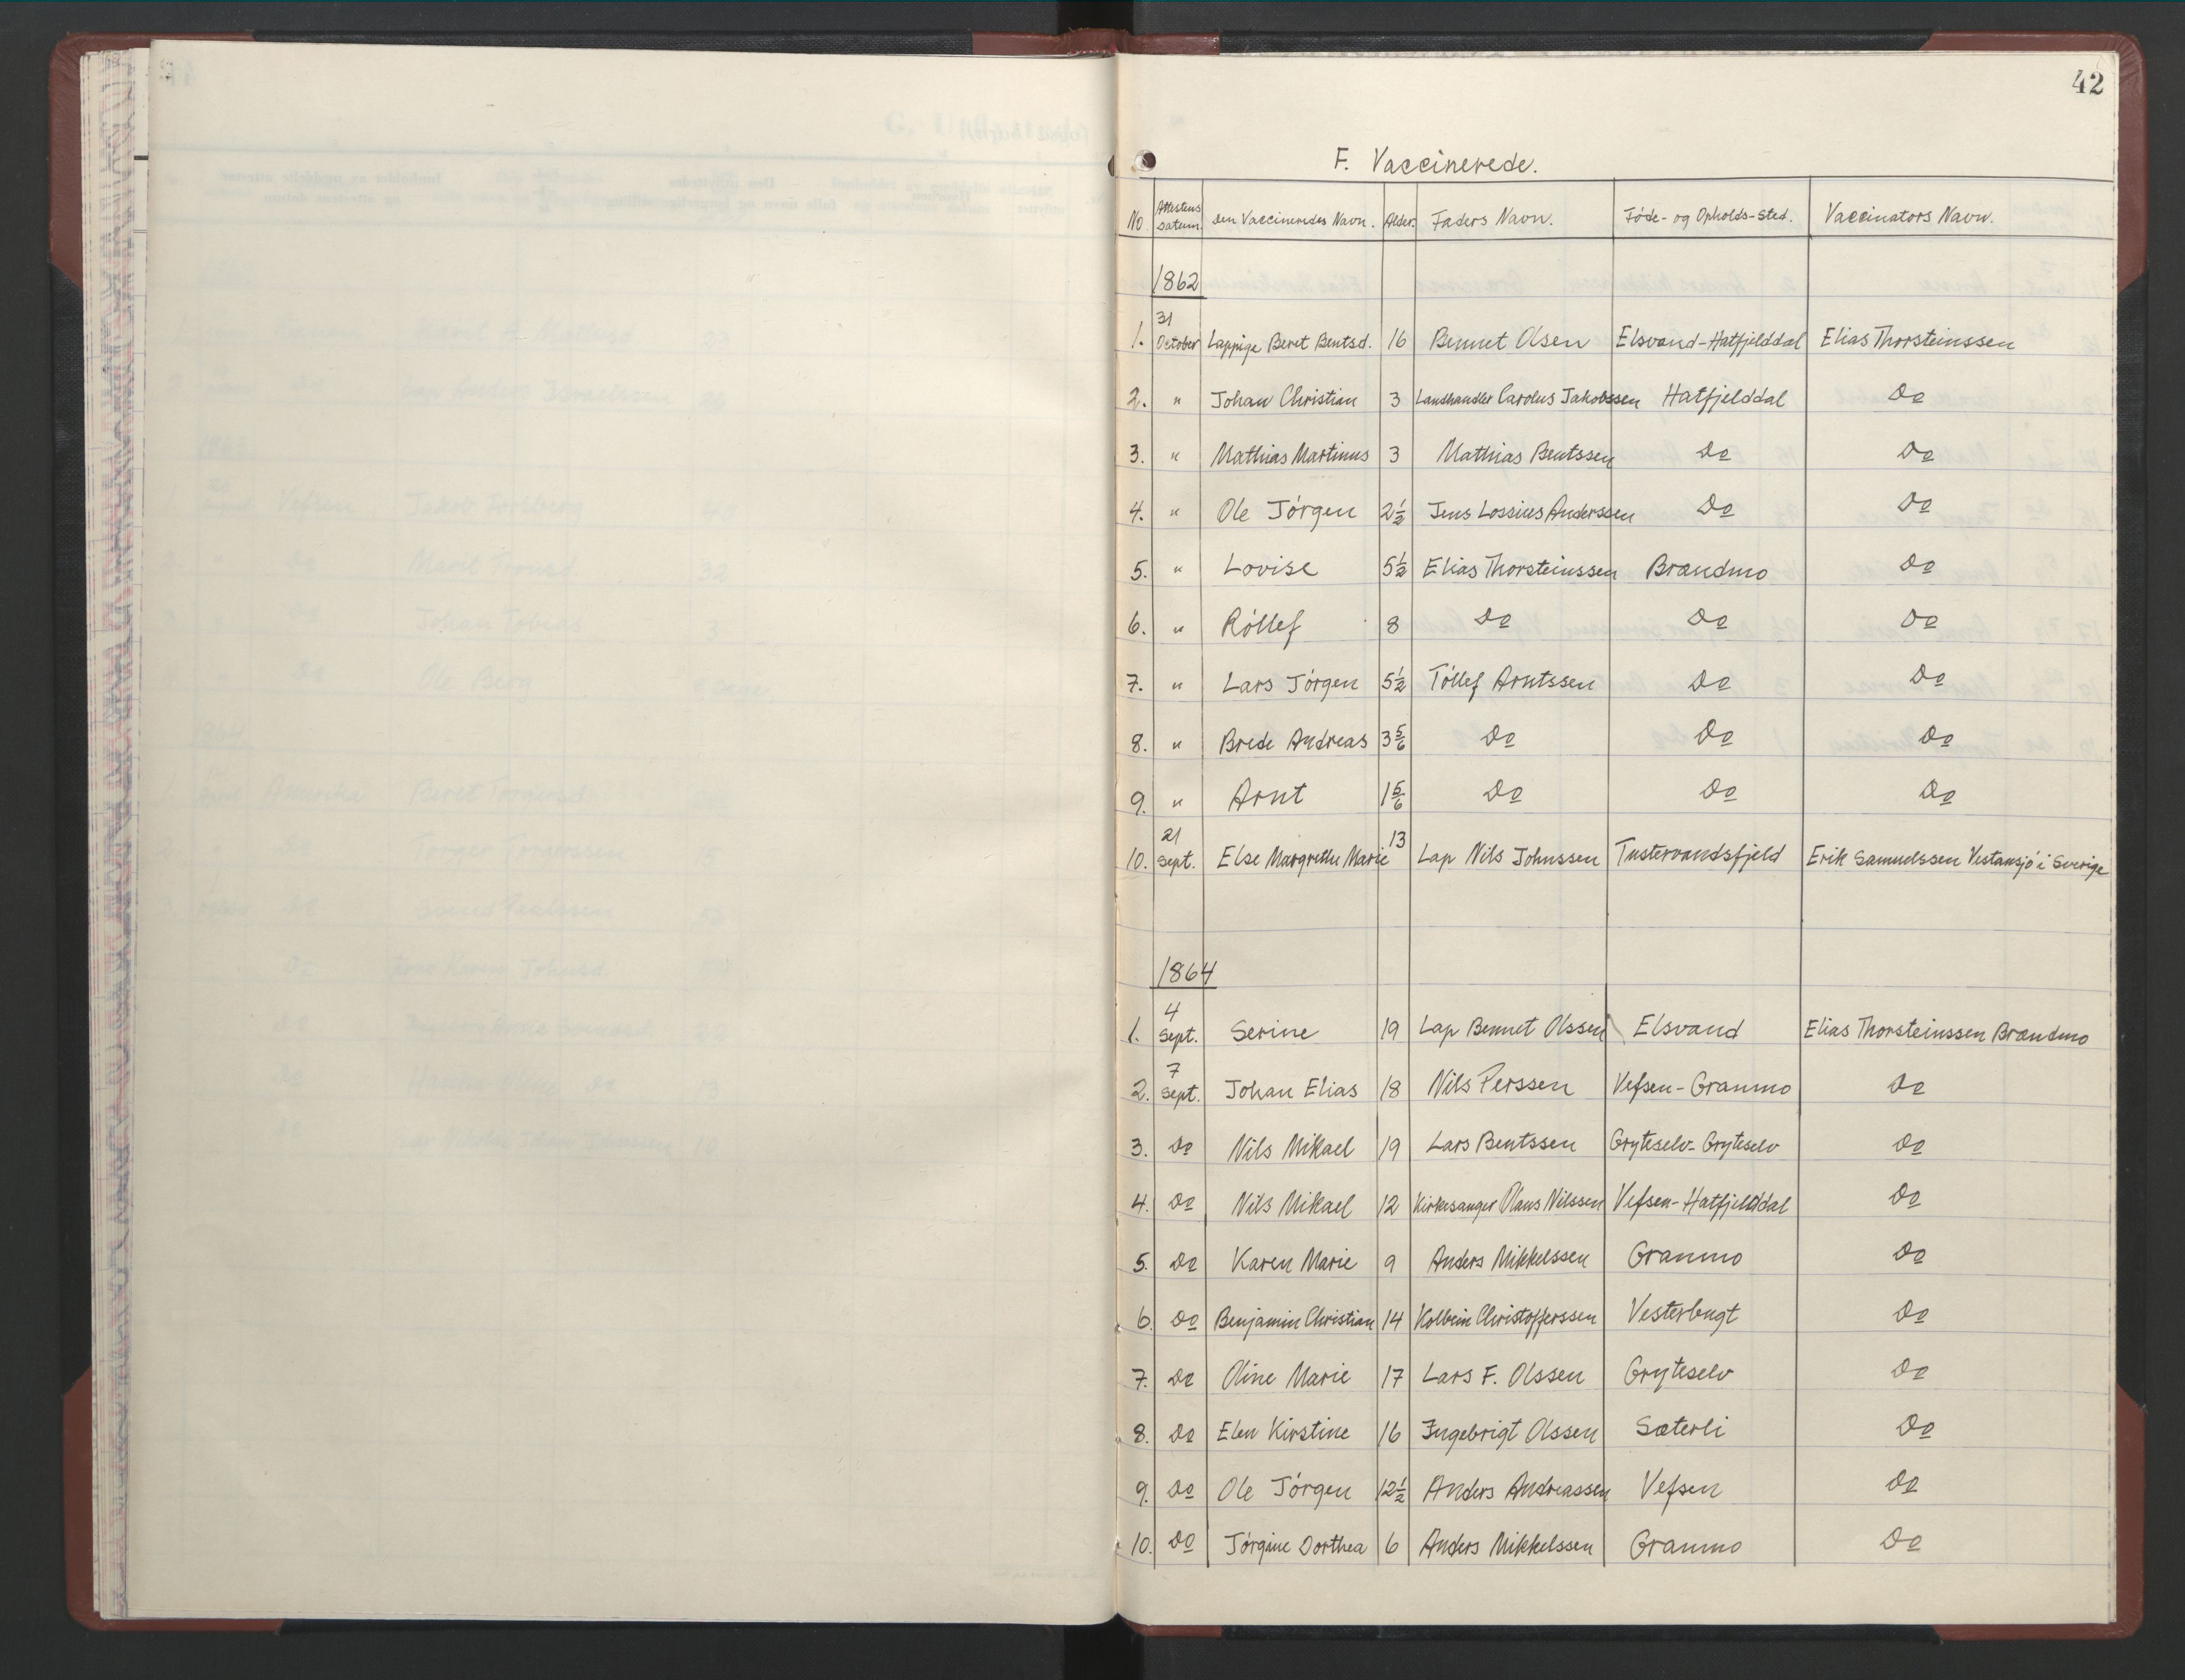 42
F. Vaccinerede.
No Attestens Datum. Den Vaccineredes Navn. Alder. Faders Navn. Føde- og Opholds-Sted. Vaccinators Navn.
1862
1. 31 October Lappige Beret Bentsd. 16 Bennet Olsen Elsvand-Hatfjelddal Elias Thorsteinssen
2. " Johan Christian 3 Landhandler Carolus Jakobssen Hatfjelddal Do
3. " Mathias Martinus 3 Mathias Bentssen Do Do
4. " Ole Jørgen 2½ Jens Lossius Anderssen Do Do
5. " Lovise 5½ Elias Thorsteinssen Brandmo Do
6. " Røllef 8 Do Do Do
7. " Lars Jørgen 5½ Tøllef Arntssen Do Do
8. " Brede Andreas 3 5/6 Do Do Do
9. " Arnt 1 5/6 Do Do Do
10. 21 Sept. Else Margrethe Marie 13 Lap Nils Johnssen Tustervandsfjeld Erik Samuelssen Vestansjø i Sverige
1864
1. 4 Sept. Serine 19 Lap Bennet Olssen Elsvand Elias Thorsteinssen Brandmo
2. 7 Sept. Johan Elias 18 Nils Perssen Vefsen-Granmo Do
3. Do Nils Mikael 19 Lars Bentssen Gryteselv-Gryteselv Do
4. Do Nils Mikael 12 Kirkesanger Olaus Nilssen Vefsen-Hatfjelddal Do
5. Do Karen Marie 9 Anders Mikkelssen Granmo Do
6. Do Benjamin Christian 14 Kolbein Christofferssen Vesterbugt Do
7. Do Oline Marie 17 Lars F. Olssen Gryteselv Do
8. Do Elen Kirstine 16 Ingebrigt Olssen Sæterli Do
9. Do Ole Jørgen 12½ Anders Andreassen Vefsen Do
10. Do Jørgine Dorthea 6 Anders Mikkelssen Granmo Do